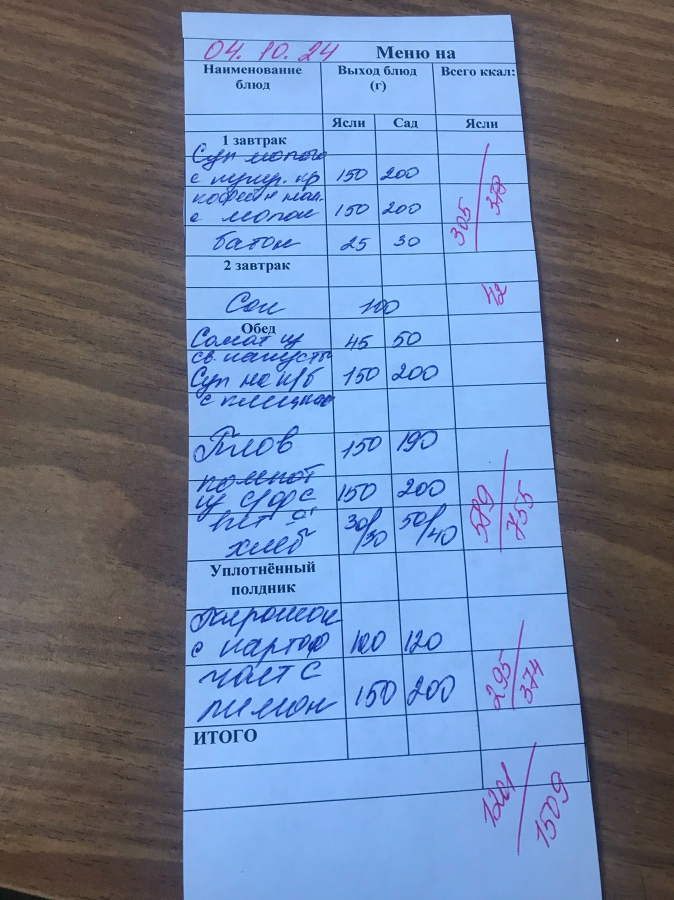 04.10.24 Меню на
Наименование Выход блюд Всего ккал:
блюд (г)
Ясли Сад Ясли
1 завтрак
Суп молоч
с кукур. кр 150 200
кофейн нап. 305/378
с молок 150 200
батон 25 30
2 завтрак
Сок 100 42
Обед
Салат из 45 50
св. капусты
Суп на к/б 150 200
с клецкой
Плов 150 190
компот
из с/ф с 150 200
вит С 30/30 50/40 589/755
хлеб
Уплотнённый
полдник
Пирожок
с картоф 100 120
чай с 295/374
лимон 150 200
ИТОГО
1509